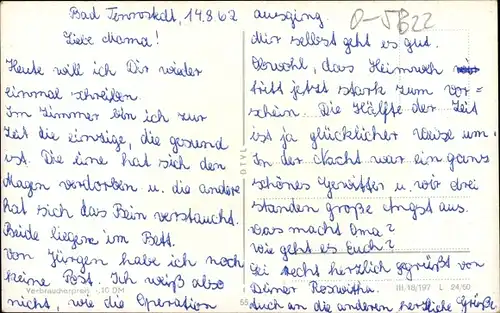 Bad Tennstedt, 14.8.62
Liebe Mama!
Heute will ich Dir wieder
einmal schreiben.
Im Zimmer bin ich zur
Zeit die einzige, die gesund
ist. Die eine hat sich den
Magen verdorben u. die andere
hat sich das Bein verstaucht.
Beide liegen im Bett.
Von Jürgen habe ich noch
keine Post. Ich weiß also
Verbraucherpreis -,10 DM
nicht, wie die Operation
DTVL
55
O-5B22
ausging
Mir selbst geht es gut.
Obwohl, das Heimweh
tritt jetzt stark zum vor=
schein. Die Hälfte der Zeit
ist ja glücklicher Weise um.
In der Nacht war ein ganz
schönes Gewitter u. wir drei
standen große Angst aus.
Was macht Oma?
Wie geht es Euch?
Sei recht herzlich gegrüßt von
Deiner Roswitha.
III/18/197 L 24/60
Auch an die anderen herzliche Grüße